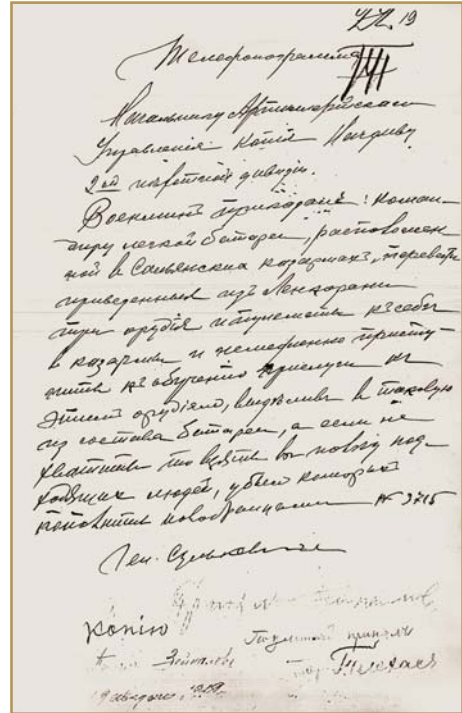 19
Телефонограмма
Начальнику Артиллерійскаго
Управленія Копія Начдиву
2ой пѣхотной дивизіи.
Военминъ приказалъ: коман-
диру легкой батареи, располоѡжен
ной в Сальянских казармахъ, перевезти
приведенныя изъ Ленкорани
три орудія и пулеметы къ себѣ
в казармы и немедленно присту-
пить къ обученію прислуги къ
этимъ орудіямъ, выдѣливъ в таковую
из состава батареи, а если не
хватитъ то взять въ полку под-
ходящих людей, убыль которых
пополнить новобранцами № 3715
Ген. Сулькевичъ
Копію
принялъ